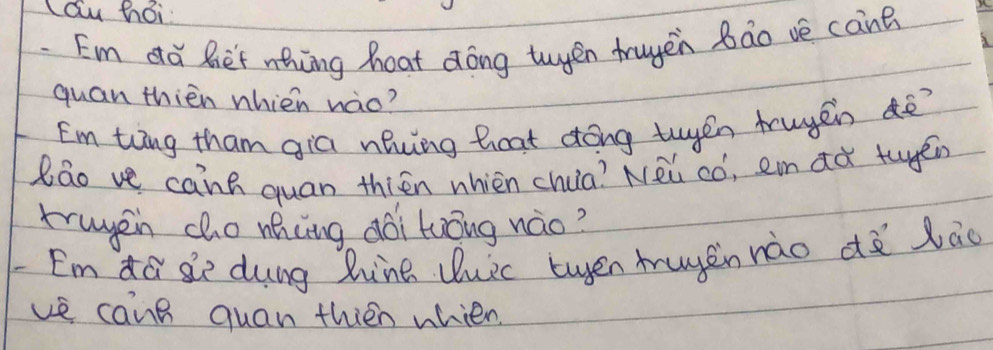 Câu hỏi:
- Em đã biết những hoạt động tuyên truyền bảo vệ cảnh
quan thiên nhiên nào?
- Em từng tham gia những hoạt động tuyên truyền để
bảo vệ cảnh quan thiên nhiên chưa? Nếu có, em đã tuyên
truyền cho những đối tượng nào?
- Em đã sử dụng hình thức tuyên truyền nào để bảo
vệ cảnh quan thiên nhiên.